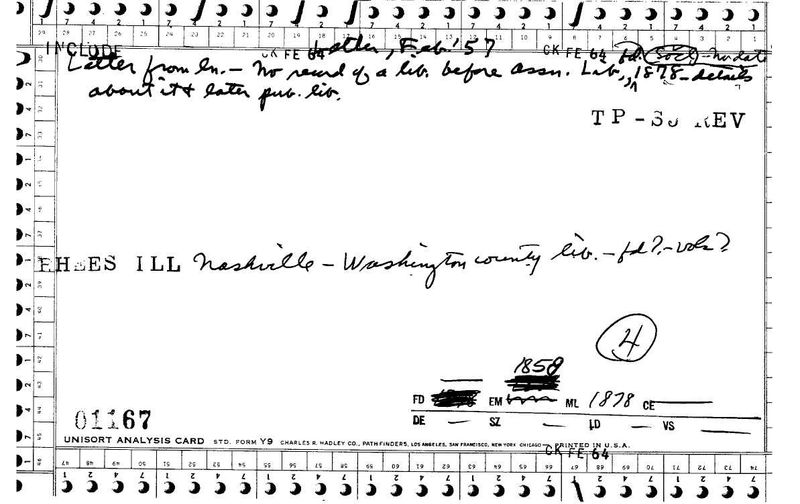 INCLUDE Letter, Feb '57 CK FE 64 fd. Socl - no date
CK FE 64
Letter from ln. - No record of a lib. before assn. Lab, 1878 - details
about it & later pub. lib.
TP-SJ REV
RHEES ILL Nashville - Washington county lib. - fd? - vols?
4
1859
FD EM ML 1878 CE
DE — SZ — LD — VS —
01167
UNISORT ANALYSIS CARD STD. FORM Y9 CHARLES R. HADLEY CO., PATHFINDERS, LOS ANGELES, SAN FRANCISCO, NEW YORK CHICAGO — PRINTED IN U.S.A.
CK FE 64